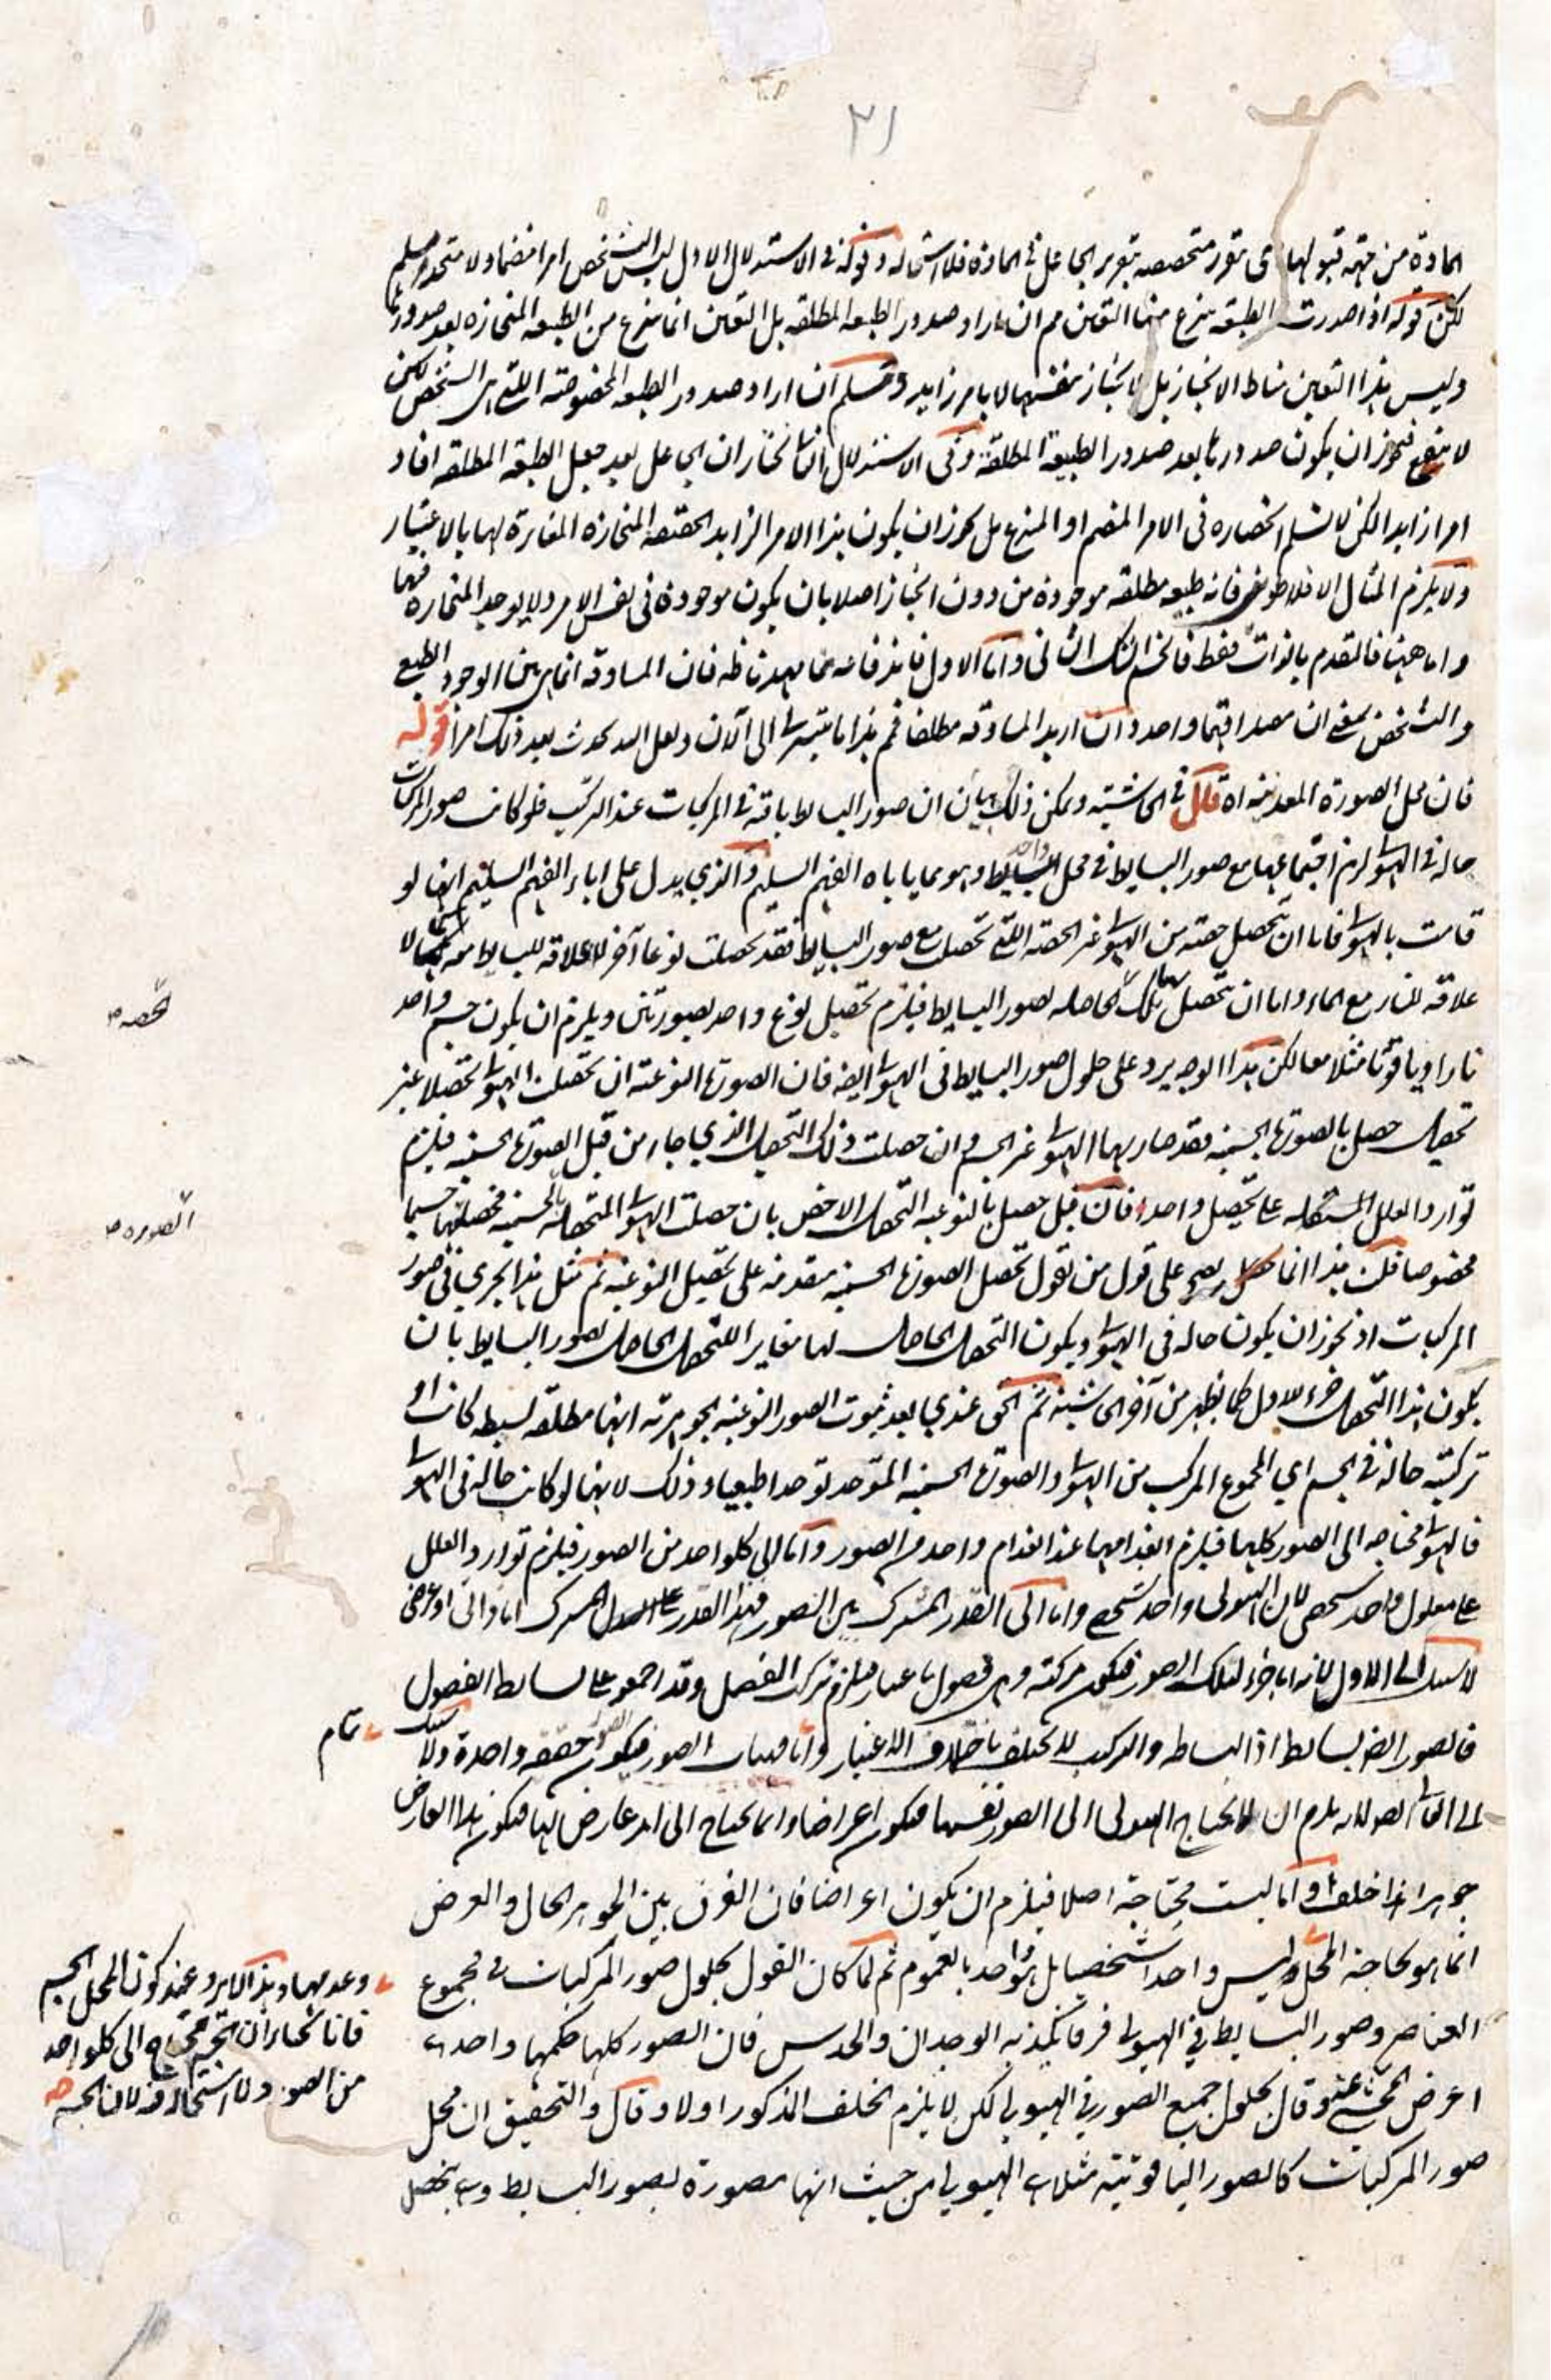 ٣١
المادة من جهة قبولها اى تقرر متحصصه بتقرير الجاعل فى المادة فلا استحالة وقوله فى الاستدلال الاول ليس التشخص امرا منضما ولا متحدا مسلم
لكن قوله اذا صدرت الطبيعة ينزع منها التعين مم ان اراد صدور الطبيعه المطلقه بل التعين انما ينزع من الطبيعه المنحازه بعد صدورها
وليس هذا التعين مناط الانحياز بل الانحياز بنفسها لا بامر زايد ومسلم ان اراد صدور الطبيعه المخصوصة اللتى هى الشخص لكن
لا ينفع فيجوز ان يكون صدورها بعد صدور الطبيعة المطلقة وفى الاستدلال الثانى نختار ان الجاعل بعد جعل الطبيعه المطلقه افاد
امرا زايدا لكن لا نسلم انحصاره فى الامر المنضم او المنتزع بل يجوز ان يكون هذا الامر الزايد الحقيقه المنحازه المغايرة لها بالاعتبار
ولا يلزم المثال الافلاطونى فانه طبيعه مطلقه موجودة من دون انحياز اصلا بان يكون موجودة فى نفس الامر ولا يوجد المنحازة فيها
واما ههنا فالتقدم بالذات فقط فانحسم الشك الثانى واما الاول فاندفاعه مما مهدنا ظه فان المساوقه انما هى بين الوجود الطبع
والتشخص بمعنى ان مصداقهما واحد وان اريد المساوقه مطلقا فمم هذا ما تيسر لى الى الآن ولعل الله يحدث بعد ذلك امرا قوله
فان محل الصورة المعدنيه اه قال فى الحاشيته ويمكن ذلك ببيان ان صور البسايط باقية فى المركبات عند التركيب فلو كانت صور المركبات
حاله فى الهيولى لزم اجتماعها مع صور البسايط فى محل واحد وهو مما ياباه الفهم السليم والذي يدل على اباء الفهم السليم انها لو
قامت بالهيولى فاما ان تحصل حصته من الهيولى غير الحصه اللتى تحصلت مع صور البسايط فقد تحصلت نوعا آخر لا علاقه للبسايط معه كما لا
علاقه للنار مع الماء واما ان تحصل بها تلك الحاصله بصور البسايط فيلزم تحصيل نوع واحد بصورتين ويلزم ان يكون جسم واحد
نارا وياقوتا مثلا معا لكن هذا الوجه يرد على حلول صور البسايط فى الهيولى ايضه فان الصورة النوعيه ان تحصلت الهيولى تحصلا غير
تحصل حصل بالصورة الجسميه فقد صار بها الهيولى غير الجسم وان حصلت ذلك التحصل الذي جاء من قبل الصورة الجسميه فيلزم
توارد العلل المستقله على تحصيل واحد فان قيل حصل بالنوعيه التحصل الاخص بان حصلت الهيولى المتحصله بالجسميه فحصلتها جسما
مخصوصا قلت هذا انما يصح على قول من تقول تحصل الصورة الجسميه مقدمه على تحصيل النوعيه ثم مثل هذا يجري فى صور
المركبات اذ نجوز ان يكون حاله فى الهيولى ويكون التحصل الحاصل لها مغايرا للتحصل الحاصل بصور البسايط بان
يكون هذا التحصل جزء للاول كما يظهر من آخر الحاشيته ثم الحق عندي بعد ثبوت الصور النوعيه الجوهريه انها مطلقه بسيطه كانت او
تركيبيه حالة فى الجسم اي المجموع المركب من الهيولى والصورة الجسميه المتوحد توحدا طبعيا وذلك لانها لو كانت حاله فى الهيولى
فالهيولى محتاجه الى الصور كلها فيلزم انعدامها عند انعدام واحد من الصور واما الى كلواحد من الصور فيلزم توارد العلل
على معلول واحد شخصى لان الهيولى واحد شخصى واما الى القدر المشترك بين الصور فهذا القدر المشترك اما ذاتى او عرضى
لا سبيل الى الاول لانه اما جزء لتلك الصور فيكون مركبة وهى فصول باعتبار فيلزم تركب الفصل وقد اجمعو على بساطة الفصول
فالصور ايضا بسايط اذ البساطه والتركيب لا يختلف باختلاف الاعتبار واما مهيات الصور فيكون الصور حقيقه واحدة ولا سبيل
الى الثانى ايضه لانه يلزم ان لا يحتاج الهيولى الى الصور نفسها فيكون اعراضا وانما يحتاج الى امر عارض لها فيكون هذا العارض
جوهرا هذا خلف واما ليست محتاجة اصلا فيلزم ان يكون اعراضا فان الفرق بين الجوهر الحال والعرض
انما هو بحاجة المحل وليس واحدا شخصيا بل هو واحد بالعموم ثم لما كان القول بحلول صور المركبات فى مجموع
العناصر وصور البسايط فى الهيولى فرقا يكذبه الوجدان والحدس فان الصور كلها حكمها واحد
اعرض المحشى عنه وقال بحلول جميع الصور فى الهيولى لكن لا يلزم الخلف المذكور اولا وقال والتحقيق ان محل
صور المركبات كالصور الياقوتية مثلا هى الهيولى من حيث انها مصورة بصور البسايط وهى بتحصل
الحصه ص
الصوره ص
تمام
وعدمها وهذا لا يرد عند كون المحل الجسم
فانا نختار ان الجسم محتاج الى كلواحد
من الصور ولا استحالة فيه لان الجسم صح